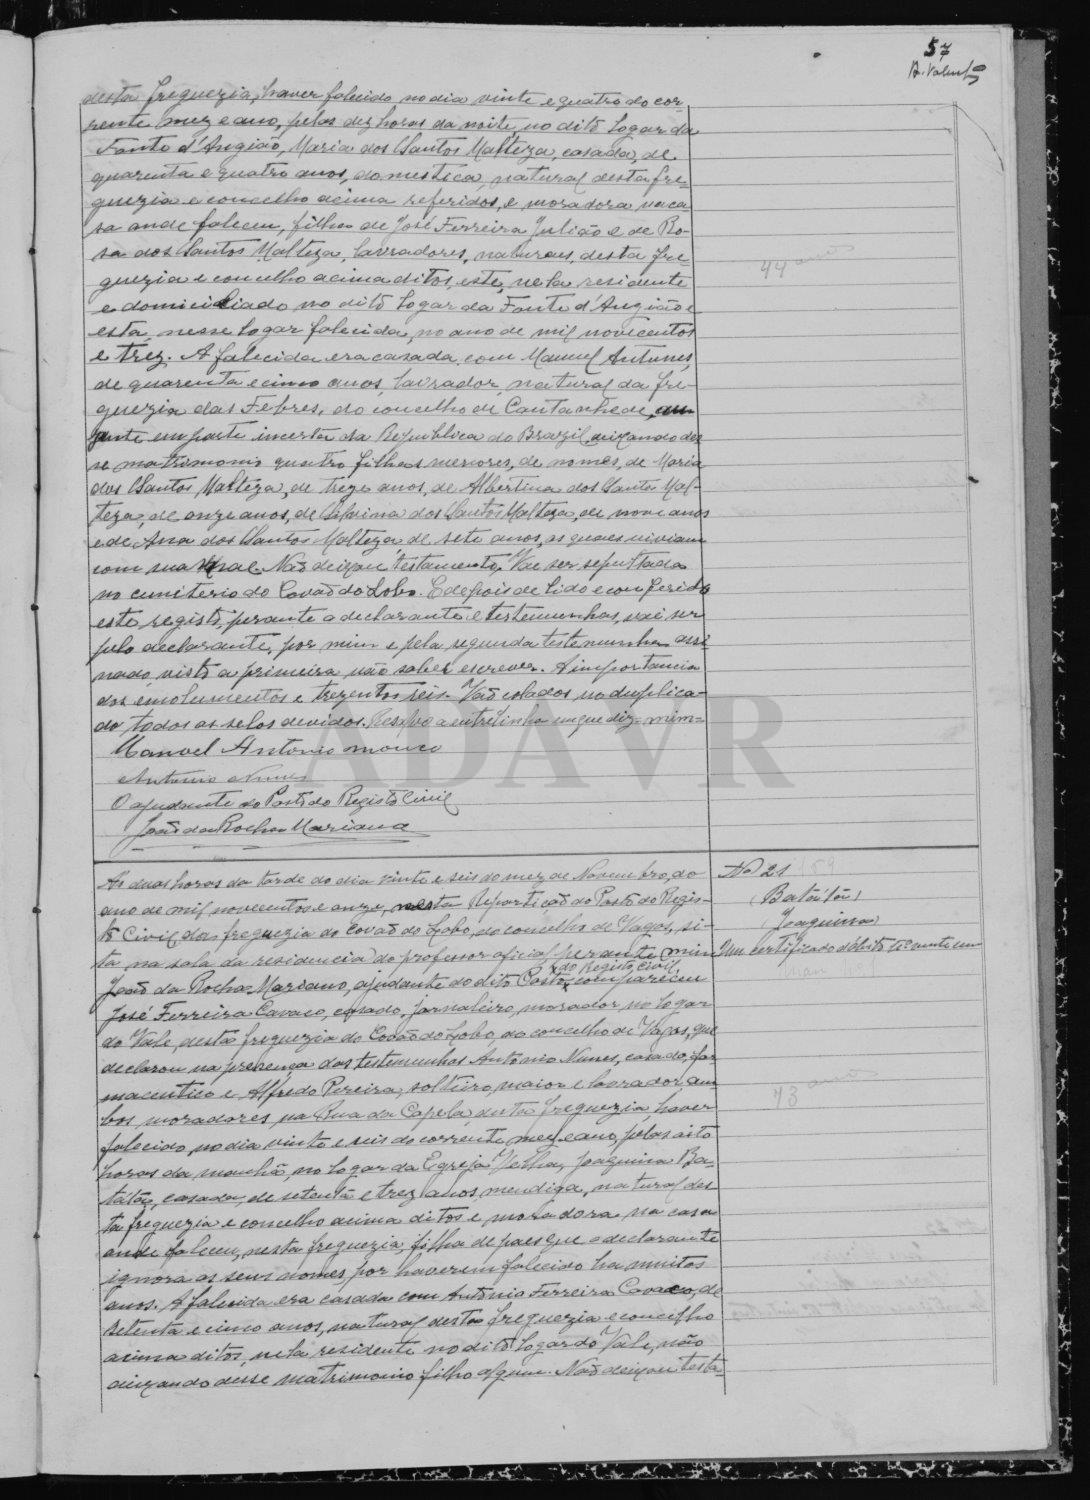 57
desta freguezia, haver falecido no dia vinte e quatro do cor-
rente mez e ano, pelas dez horas da noite, no dito logar da
Fonte d'Angião, Maria dos Santos Malteza, casada, de
quarenta e quatro anos, domestica, natural desta fre-
guezia e concelho acima referidos, e moradora na ca-
sa onde faleceu, filha de José Ferreira Julião e de Ro-
sa dos Santos Malteza, lavradores, naturaes, desta fre-
guezia e concelho acima ditos, este, nela residente
e domiciliado no dito logar da Fonte d'Angião e
esta, nesse logar falecida, no ano de mil novecentos
e trez. A falecida era casada com Manuel Antunes,
de quarenta e cinco anos, lavrador, natural da fre-
guezia das Febres, do concelho de Cantanhede, au-
zente em parte incerta da Republica do Brazil, deixando des-
se matrimonio quatro filhas menores, de nomes, de Maria
dos Santos Malteza, de treze anos, de Albertina dos Santos Mal-
teza, de onze anos, de dos Santos Malteza, de nove anos
e de Ana dos Santos Malteza, de sete anos, as quaes viviam
com sua Mãe. Não deixou testamento. Vae ser sepultada
no cemiterio do Covão do Lobo. E depois de lido e conferido
este registo, perante o declarante e testemunhas, vai ser
pelo declarante, por mim e pela segunda testemunha assi-
nado, visto a primeira não saber escrever. A importancia
dos emolumentos e trezentos reis. Vão colados no duplica-
do todos os selos devidos. Resalvo a entrelinha em que diz = mim =
Manoel Antonio mouco
Antonio Nunes
O ajudante do Posto do Registo Civil
João da Rocha Mariano
44 anos
As duas horas da tarde do dia vinte e seis do mez de Novembro, do
ano de mil novecentos e onze, nesta Repartição do Posto do Regis-
to Civil da freguezia do Covão do Lobo, do concelho de Vagos, si-
ta na sala da residencia do professor oficial, perante mim
João da Rocha Mariano, ajudante do dito Posto do Registo Civil, compareceu
José Ferreira Cavaco, casado, jornaleiro, morador no logar
do Vale, desta freguezia do Covão do Lobo, do concelho de Vagos, que
declarou na presença das testemunhas Antonio Nunes, casado, far-
maceutico e Alfredo Pereira, solteiro, maior e lavrador, am-
bos moradores na Rua da Capela, desta freguezia haver
falecido, no dia vinte e seis do corrente mez e ano, pelas oito
horas da manhã, no logar da Egreja Velha, Joaquina Ba-
tatôa, casada, de setenta e trez anos, mendiga, natural des-
ta freguezia e concelho acima ditos e moradora na casa
onde faleceu, nesta freguezia, filha de paes que o declarante
ignora os seus nomes, por haverem falecido ha muitos
anos. A falecida era casada com Antonio Ferreira Cavaco, de
setenta e cinco anos, natural desta freguezia e concelho
acima ditos, nela residente no dito logar do Vale, não
deixando desse matrimonio filho algum. Não deixou testa-
Nº 21
(Batatôa)
Joaquina
Um certificado d'obito
73 anos
ADAVR